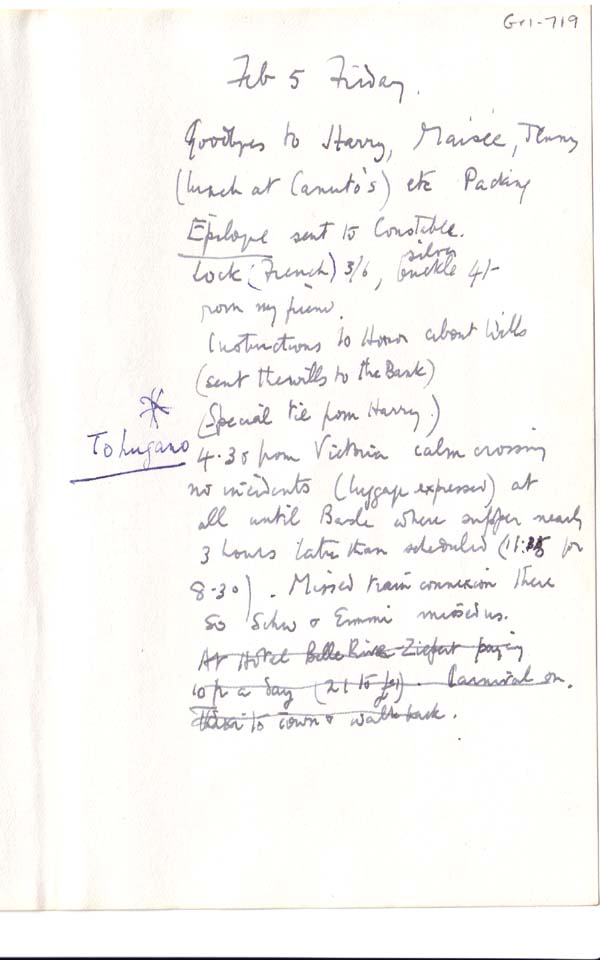 Gr1-719
Feb 5 Friday.
Goodbyes to Harry, Maisie, Jenny
(lunch at Canuto's) etc Packing
Epilogue sent to Constable.
silver
Lock (French) 3/6, buckle 4/-
from my friend.
Instructions to Honor about Wills
(sent the wills to the Bank)
(Special tie from Harry.)
To Lugano
4.30 from Victoria calm crossing
no incidents (luggage expressed) at
all until Basle where supper nearly
3 hours later than scheduled (11: for
8-30). Missed train connexion there
So & Emmi missed us.
At Hotel Belle Rive paying
10 fr a day (21 to £). Carnival on.
to town & walk back.